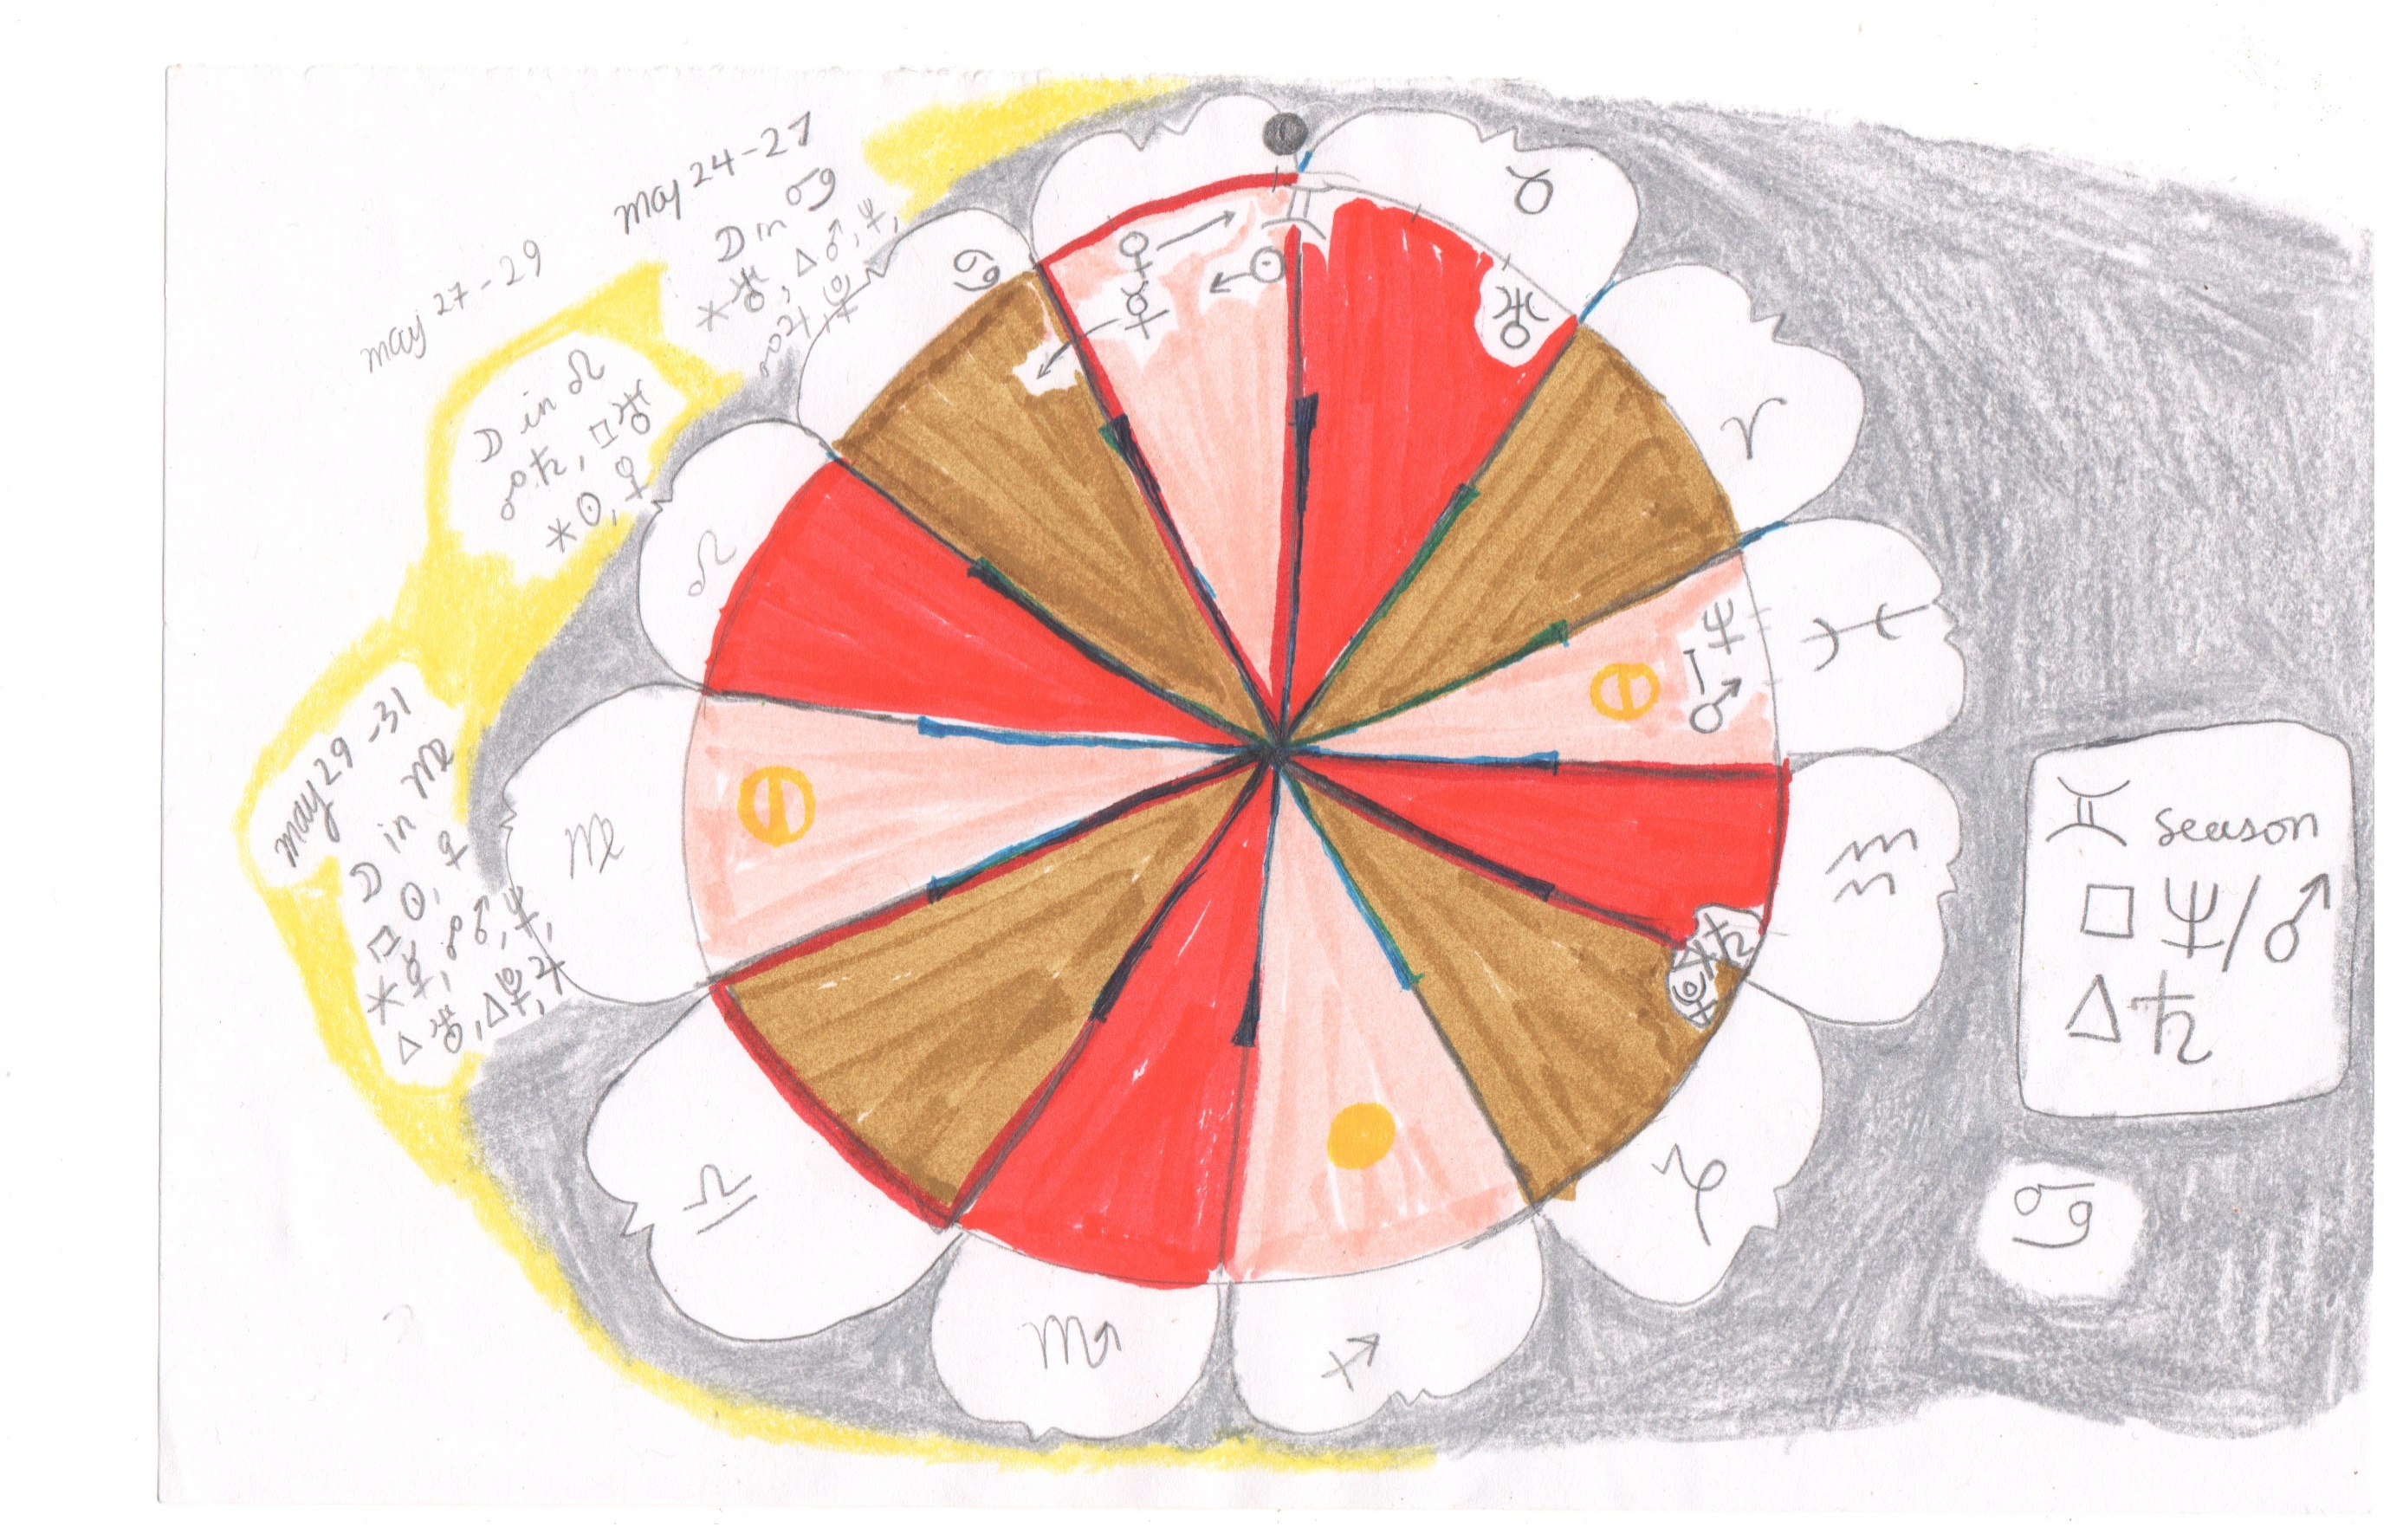 may 24-27
☽ in ♋
⚹ ♅, △ ♂, ♆,
☍ ♃, ♇
may 27-29
☽ in ♌
☍ ♄, □ ♅
⚹ ☉, ♀
may 29-31
☽ in ♍
□ ☉, ♀
⚹ ☿, ☍ ♂, ♆,
△ ♅, △ ♇, ♃
♉
♈
♓
♒
♑
♐
♏
♎
♍
♌
♋
♀ → ← ☉
☿
♅
♆
♂
♄
♇
♊ season
□ ♆/♂
△ ♄
♋